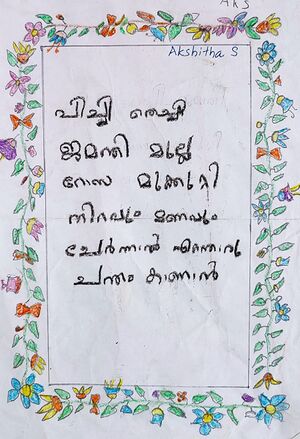 AKS
Akshitha S
പിച്ചി തെച്ചി
ജമന്തി മുല്ല
റോസ മുക്കുറ്റി
നിറവും മണവും
ചേർന്നാൽ എന്തൊരു
ചന്തം കാണാൻ